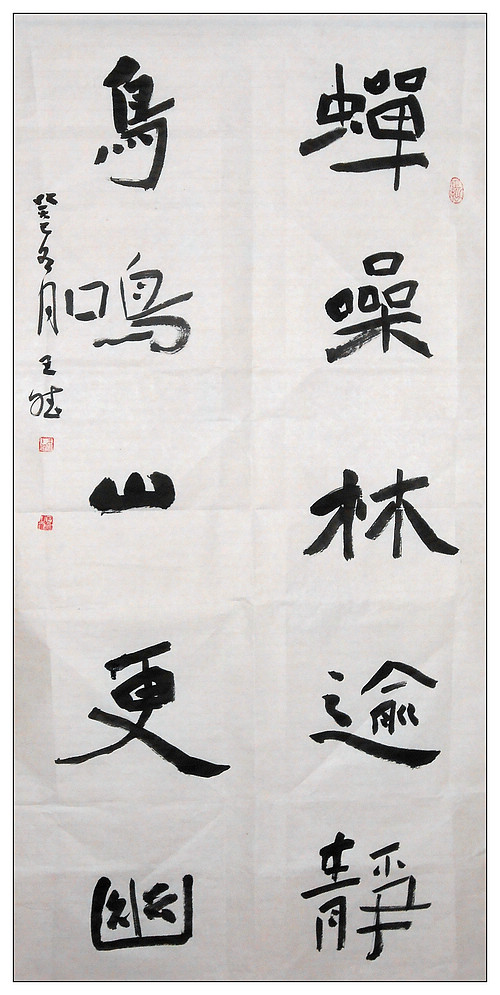 蟬噪林逾靜
鳥鳴山更幽
癸巳冬月 王